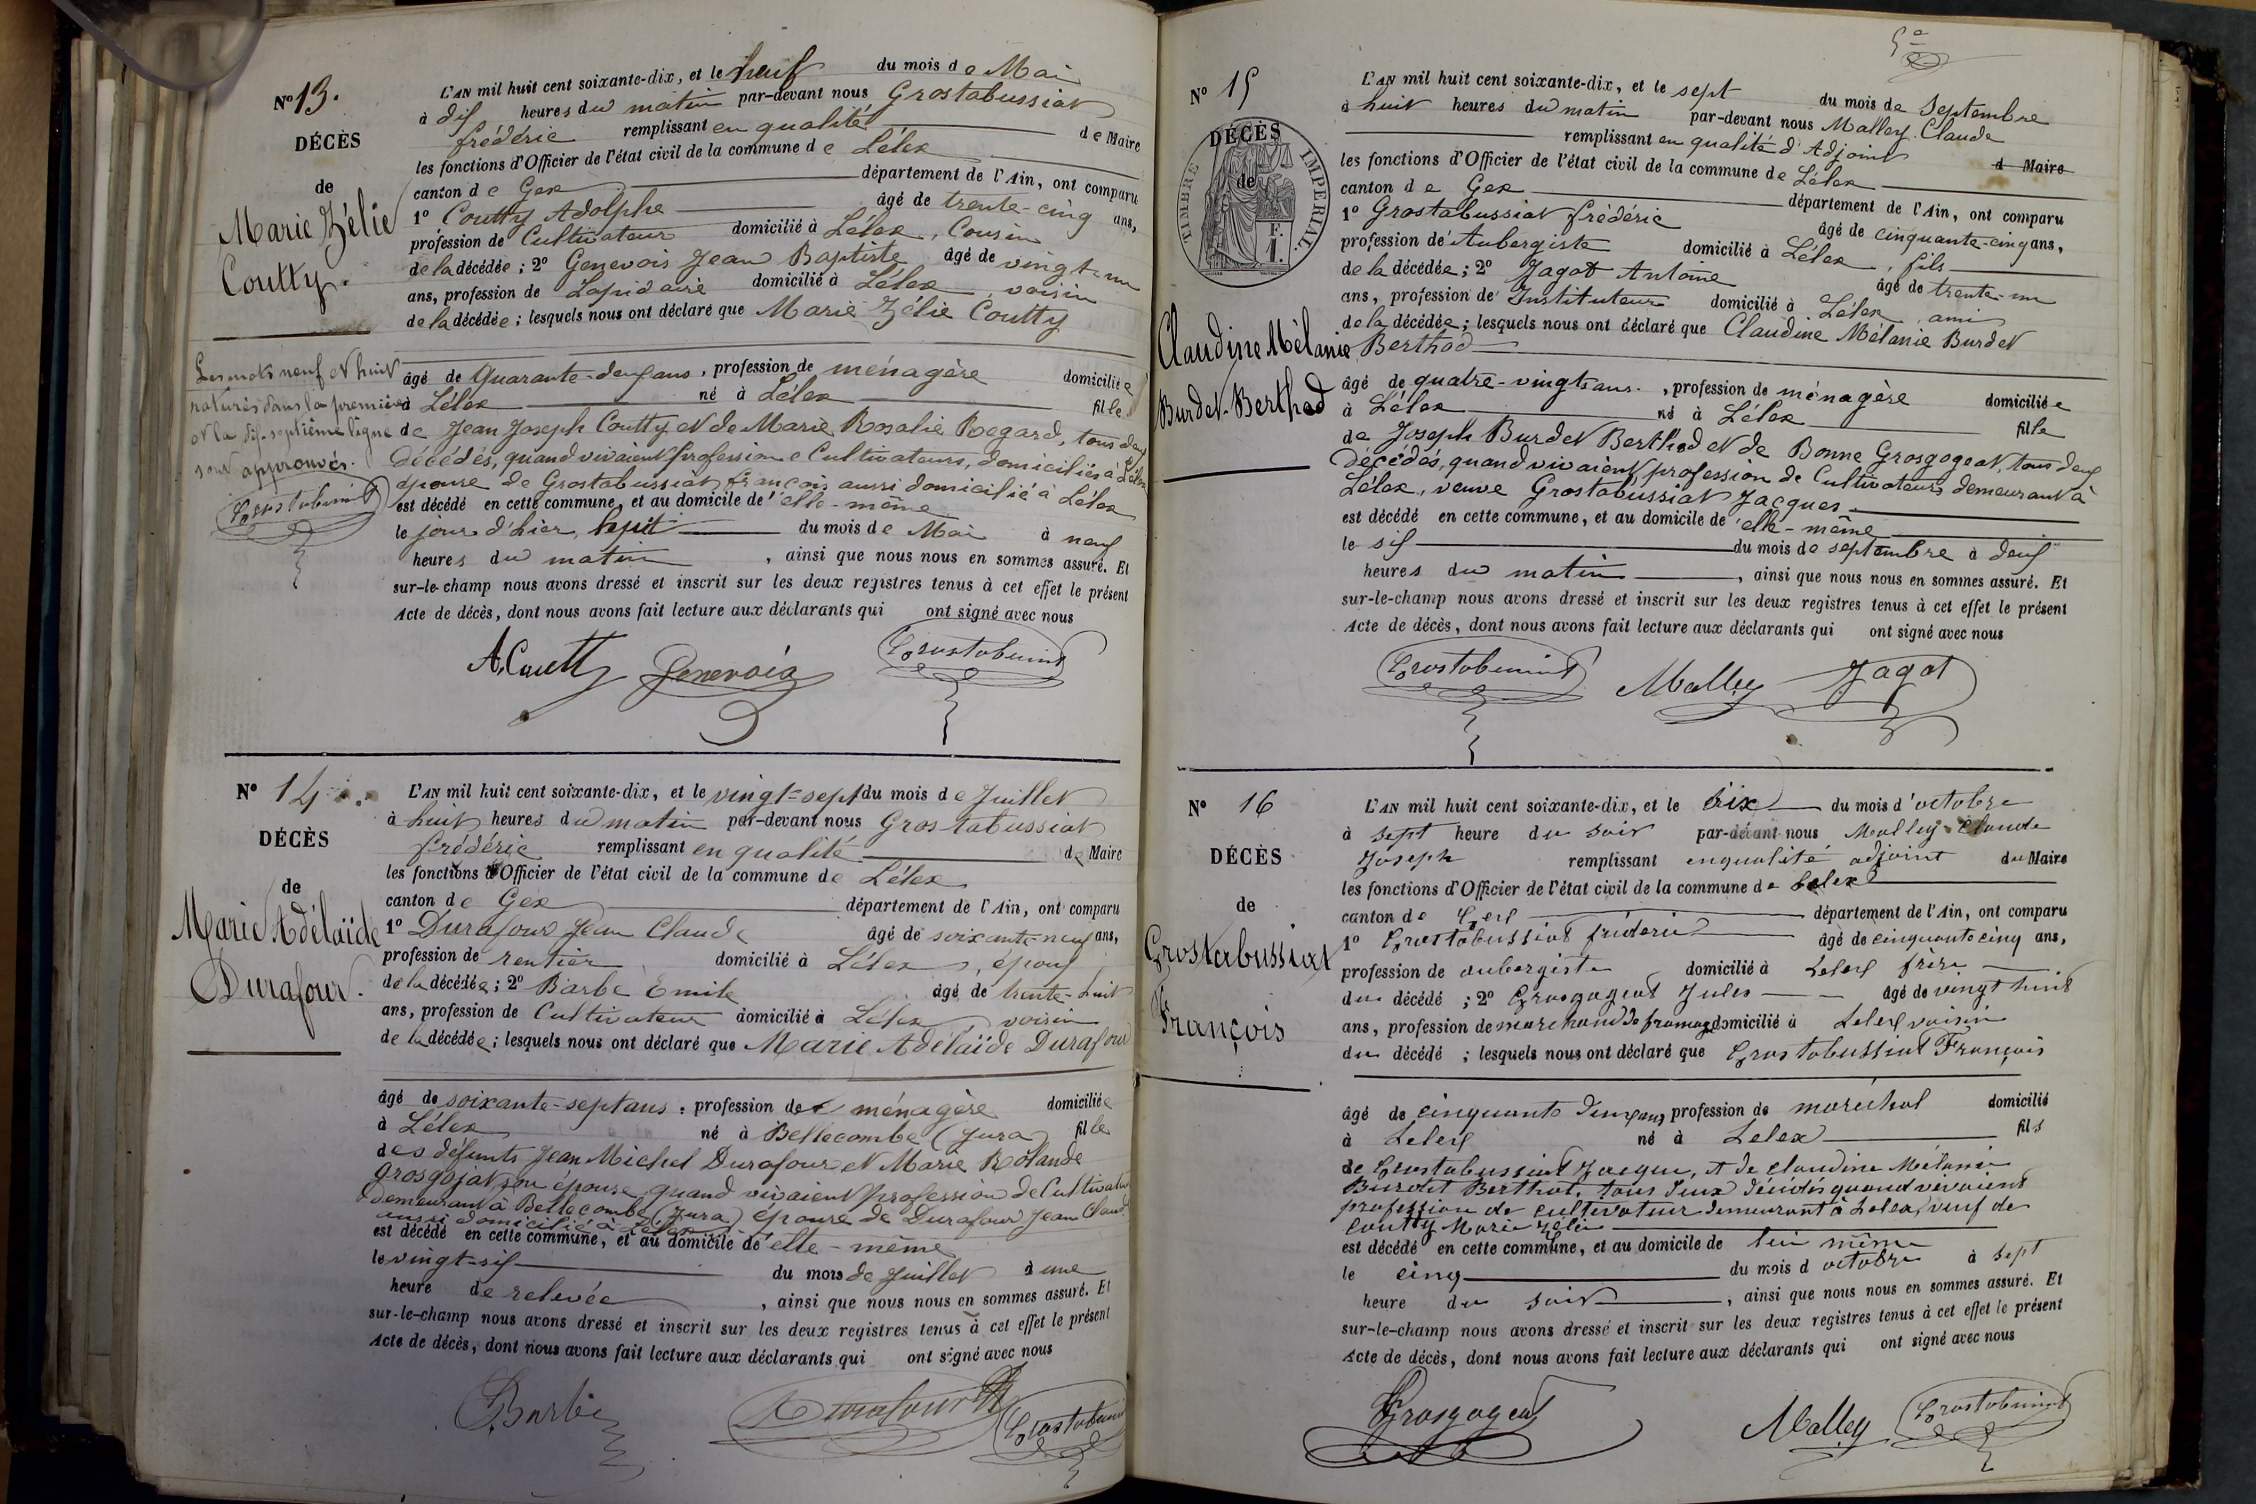 Nº 13.
DÉCÈS
de
Marie Zélie
Coutty.
L'AN mil huit cent soixante-dix, et le neuf du mois de Mai
à dix heures du matin par-devant nous Grostabussiat
frédéric remplissant en qualité de Maire
les fonctions d'Officier de l'état civil de la commune de Lélex
canton de Gex département de l'Ain, ont comparu
1º Coutty Adolphe âgé de trente-cinq ans,
profession de Cultivateur domicilié à Lélex, Cousin
de la décédée ; 2º Genevois Jean Baptiste âgé de vingt-un
ans, profession de Lapidaire domicilié à Lélex, voisin
de la décédée ; lesquels nous ont déclaré que Marie Zélie Coutty
âgé de Quarante-deux ans, profession de ménagère domiciliée
à Lélex né à Lélex fille
de Jean Joseph Coutty et de Marie Rosalie Regard, tous deux
Décédés, quand vivaient profession e Cultivateurs, domiciliés à Lélex
épouse de Grostabussiat françois aussi domicilié à Lélex
est décédé en cette commune, et au domicile de elle-même
le jour d'hier, huit du mois de Mai à neuf
heures du matin, ainsi que nous nous en sommes assuré. Et
sur-le-champ nous avons dressé et inscrit sur les deux registres tenus à cet effet le présent
Acte de décès, dont nous avons fait lecture aux déclarants qui ont signé avec nous
Les mots neuf et huit
raturés dans la première
et la dix-septième ligne
sont approuvés.
Grostabussiat
A. Coutty Genevois Grostabussiat
Nº 14
DÉCÈS
de
Marie Adélaïde
Durafour.
L'AN mil huit cent soixante-dix, et le vingt-sept du mois de Juillet
à huit heures du matin par-devant nous Grostabussiat
frédéric remplissant en qualité de Maire
les fonctions d'Officier de l'état civil de la commune de Lélex
canton de Gex département de l'Ain, ont comparu
1º Durafour Jean Claude âgé de soixante-neuf ans,
profession de rentier domicilié à Lélex, époux
de la décédée ; 2º Barbe Emile âgé de trente-huit
ans, profession de Cultivateur domicilié à Lélex, voisin
de la décédée ; lesquels nous ont déclaré que Marie Adélaïde Durafour
âgé de soixante-sept ans, profession de ménagère domiciliée
à Lélex né à Bellecombe (Jura) fille
des défunts Jean Michel Durafour et Marie Rolande
Grosgojat son épouse quand vivaient profession de Cultivateurs
demeurant à Bellecombe (Jura) épouse de Durafour Jean Claude
aussi domicilié à Lélex
est décédé en cette commune, et au domicile de elle-même
le vingt-six du mois de Juillet à une
heure de relevée, ainsi que nous nous en sommes assuré. Et
sur-le-champ nous avons dressé et inscrit sur les deux registres tenus à cet effet le présent
Acte de décès, dont nous avons fait lecture aux déclarants qui ont signé avec nous
Barbe Durafour Grostabussiat
5e
Nº 15
DÉCÈS
de
TIMBRE IMPERIAL.
F.
1.
Claudine Mélanie
Burdet-Berthod
L'AN mil huit cent soixante-dix, et le sept du mois de Septembre
à huit heures du matin par-devant nous Malley Claude
remplissant en qualité d'Adjoint d Maire
les fonctions d'Officier de l'état civil de la commune de Lélex
canton de Gex département de l'Ain, ont comparu
1º Grostabussiat frédéric âgé de cinquante-cinq ans,
profession de Aubergiste domicilié à Lélex, fils
de la décédée ; 2º Jagot Antoine âgé de trente-un
ans, profession de Instituteur domicilié à Lélex, ami
de la décédée ; lesquels nous ont déclaré que Claudine Mélanie Burdet
Berthod
âgé de quatre-vingt ans, profession de ménagère domiciliée
à Lélex né à Lélex fille
de Joseph Burdet Berthod et de Bonne Grosgogeat, tous deux
Décédés, quand vivaient profession de Cultivateurs demeurant à
Lélex, veuve Grostabussiat Jacques
est décédé en cette commune, et au domicile de elle-même
le six du mois de septembre à deux
heures du matin, ainsi que nous nous en sommes assuré. Et
sur-le-champ nous avons dressé et inscrit sur les deux registres tenus à cet effet le présent
Acte de décès, dont nous avons fait lecture aux déclarants qui ont signé avec nous
Grostabussiat Malley Jagot
Nº 16
DÉCÈS
de
Grostabussiat
François
L'AN mil huit cent soixante-dix, et le six du mois d'octobre
à sept heure du soir par-devant nous Malley Claude
Joseph remplissant en qualité adjoint du Maire
les fonctions d'Officier de l'état civil de la commune de Lelex
canton de Gex département de l'Ain, ont comparu
1º Grostabussiat fréderic âgé de cinquante cinq ans,
profession de aubergiste domicilié à Lelex frère
du décédé ; 2º Grosgogeat Jules âgé de vingt huit
ans, profession de marchand de fromage domicilié à Lelex voisin
du décédé ; lesquels nous ont déclaré que Grostabussiat François
âgé de cinquante deux ans profession de maréchal domicilié
à Lelex né à Lelex fils
de Grostabussiat Jacque, et de Claudine Mélanie
Burdet Berthod, tous deux décédés quand vivaient
profession de cultivateur demeurant à Lelex, veuf de
Coutty Marie Zélie
est décédé en cette commune, et au domicile de lui même
le cinq du mois d octobre à sept
heure du soir, ainsi que nous nous en sommes assuré. Et
sur-le-champ nous avons dressé et inscrit sur les deux registres tenus à cet effet le présent
Acte de décès, dont nous avons fait lecture aux déclarants qui ont signé avec nous
Grosgogeat Malley Grostabussiat